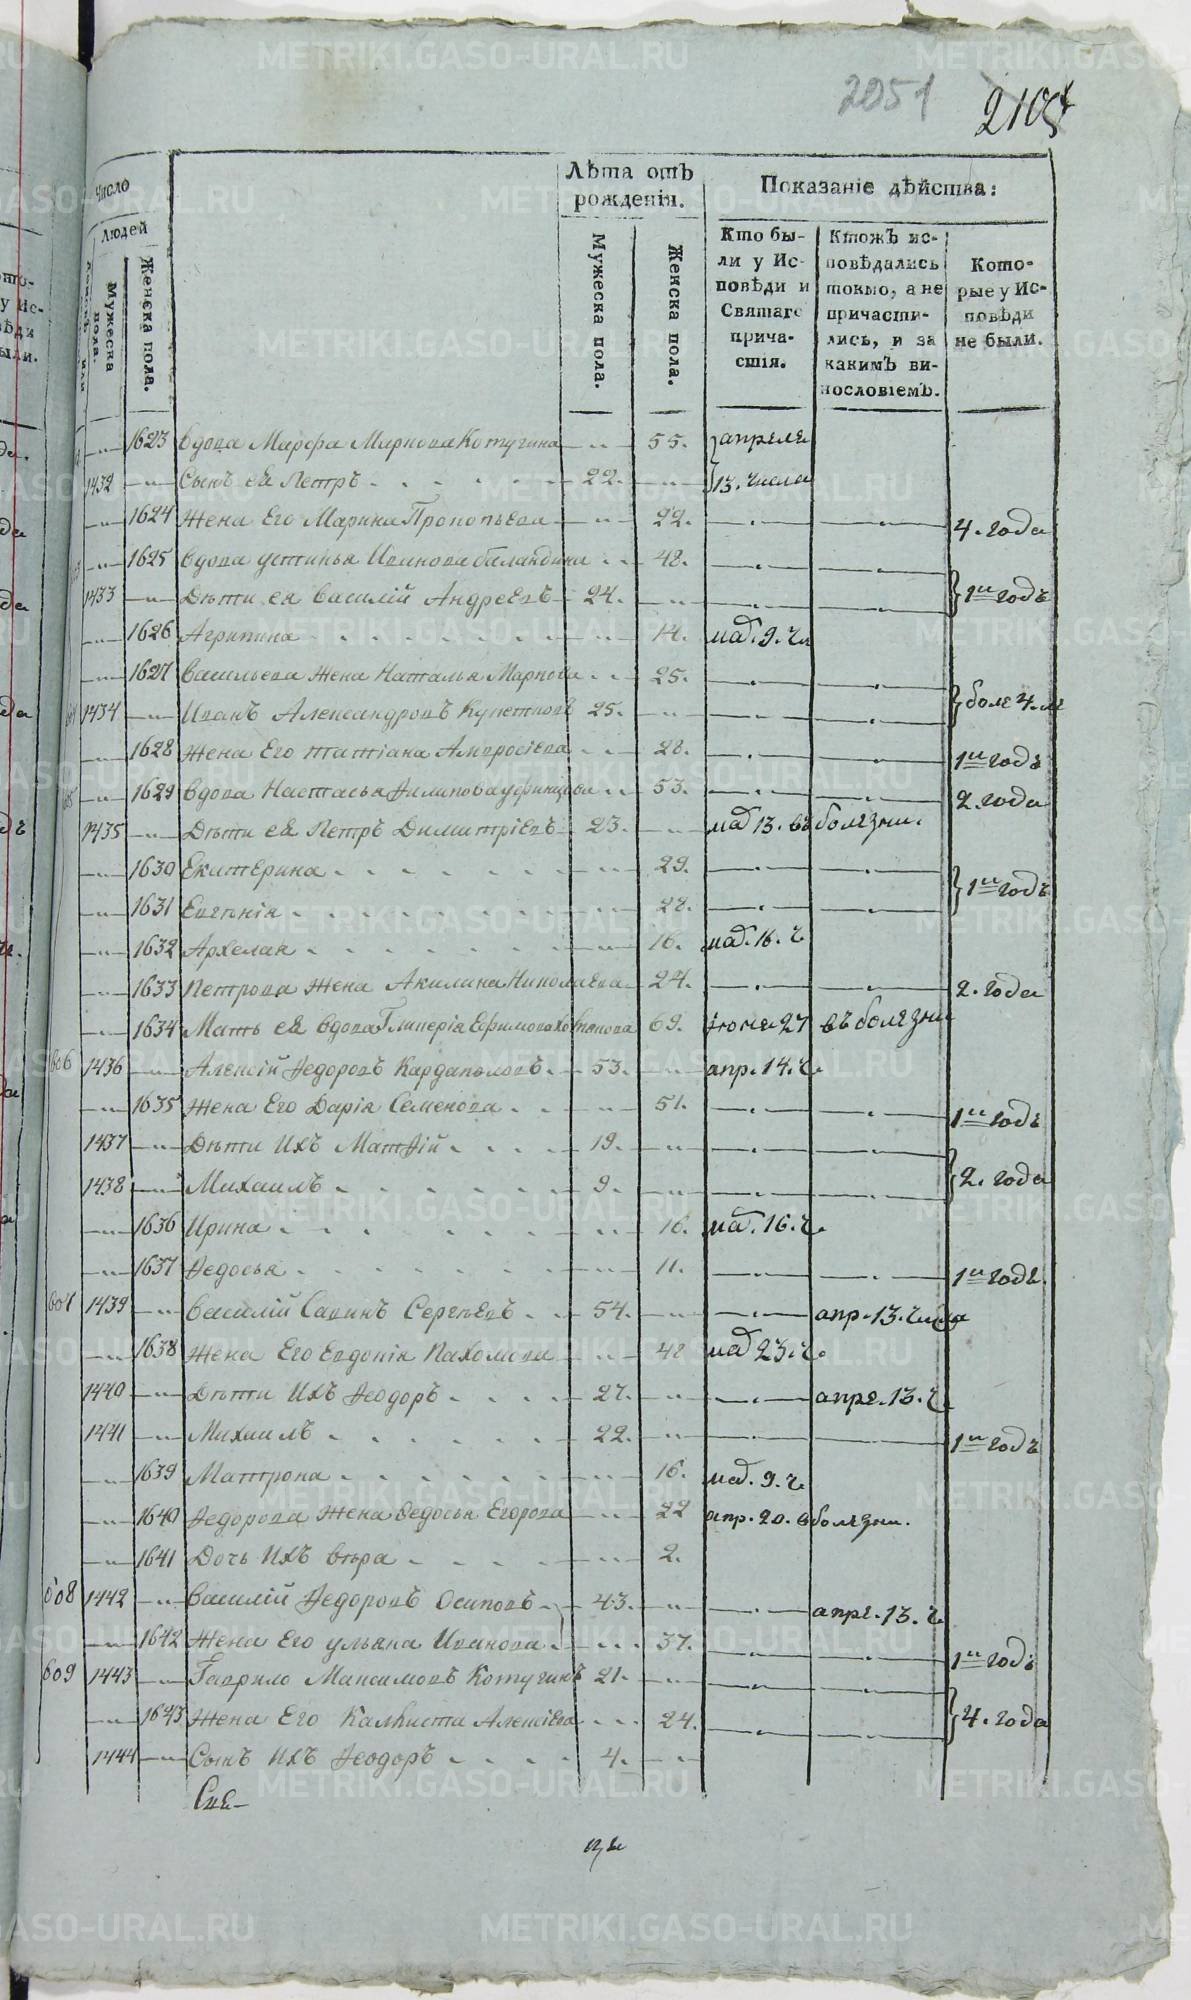 2051
210
Число
Людей
Мужеска пола.
Женска пола.
Лѣта отъ рожденія.
Мужеска пола.
Женска пола.
Показаніе дѣйства:
Кто бы-
ли у Ис-
повѣди и
Святаго
прича-
стія.
Ктожъ ис-
повѣдались
токмо, а не
причасти-
лись, и за
какимъ ви-
нословіемъ.
Кото-
рые у Ис-
повѣди
не были.
-"- 1623 Вдова Марфа Маркова Котугина -"- 55. апреля
1432 -"- Сынъ ея Петръ 22. -"- 13. числа
-"- 1624 Жена Его Марина Прокопьева -"- 22. 4. года
-"- 1625 Вдова Устинья Иванова Баландина 48.
1433 -"- Дѣти ея Василій Андреевъ 24. -"- 1й годъ
-"- 1626 Агрипина -"- 14. маӏ. 9. ч.
-"- 1627 Васильева Жена Наталья Маркова 25.
1434 -"- Иванъ Александровъ Кунетковъ 25. -"- боле 4.
-"- 1628 Жена Его Татіана Амвросіева 28. 1й годъ
-"- 1629 Вдова Настасья Филипова 53. 2. года
1435 -"- Дѣти ея Петръ Димитріевъ 23. -"- маӏ 13. въ болезни.
-"- 1630 Екатерина -"- 29.
-"- 1631 Евгенія -"- 28. 1й годъ
-"- 1632 Архелая -"- 16. маӏ. 16. ч
-"- 1633 Петрова Жена Акилина Николаева 24. 2. года
-"- 1634 Мать ея вдова Гликерія Ефимова 69. іюня 27 въ болезни
606 1436 -"- Алексій Ѳедоровъ Кардаполовъ 53. -"- апр. 14. ч.
-"- 1635 Жена Его Дарія Семенова -"- 51. 1й годъ
1437 -"- Дѣти Ихъ Матѳій 19. -"-
1438 -"- Михаилъ 9. -"- 2. года
-"- 1636 Ирина -"- 16. маӏ. 16. ч.
-"- 1637 Ѳедосья -"- 11. 1й годъ.
607 1439 -"- Василій Савинъ Сергѣевъ 54. -"- апр. 13. числа
-"- 1638 Жена Его Евдокія Пахомова -"- 48 маӏ 23. ч.
1440 -"- Дѣти Ихъ Ѳеодоръ 27. -"- апре. 13. ч.
1441 -"- Михаилъ 22. -"- 1й годъ
-"- 1639 Матрона -"- 16. маӏ. 9. ч.
-"- 1640 Ѳедорова Жена Ѳедосья Егорова -"- 22 апр. 20. в болезни.
-"- 1641 Дочь Ихъ Вѣра -"- 2.
608 1442 -"- Василій Ѳедоровъ Осиповъ 43. -"- апре. 13. ч
-"- 1642 Жена Его Ульяна Иванова 37. 1й годъ
609 1443 -"- Гаврило Максимовъ Котугинъ 21. -"-
-"- 1643 Жена Его Калиста Алексіева 24. 4. года
1444 -"- Сынъ Ихъ Ѳеодоръ 4. -"-
METRIKI.GASO-URAL.RU